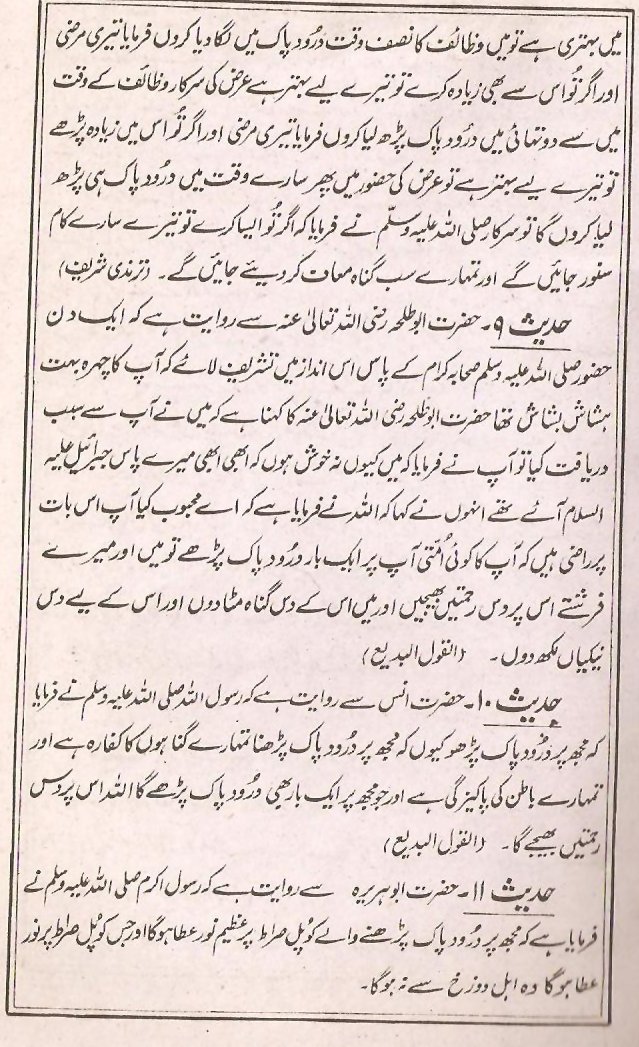 میں بہتری ہے تو میں وظائف کا نصف وقت درُود پاک میں لگا دیا کروں فرمایا تیری مرضی
اور اگر تُو اس سے بھی زیادہ کرے تو تیرے لیے بہتر ہے عرض کی سرکار وظائف کے وقت
میں سے دو تہائی میں درُود پاک پڑھ لیا کروں فرمایا تیری مرضی اور اگر تُو اس میں زیادہ پڑھے
تو تیرے لیے بہتر ہے تو عرض کی حضور میں پھر سارے وقت میں درود پاک ہی پڑھ
لیا کروں گا تو سرکار صلی اللہ علیہ وسلّم نے فرمایا کہ اگر تُو ایسا کرے تو تیرے سارے کام
سنور جائیں گے اور تمہارے سب گناہ معاف کر دیئے جائیں گے۔ (ترمذی شریف)
حدیث ۹۔ حضرت ابو طلحہ رضی اللہ تعالیٰ عنہ سے روایت ہے کہ ایک دن
حضور صلی اللہ علیہ وسلم صحابہ کرام کے پاس اس انداز میں تشریف لائے کہ آپ کا چہرہ بہت
ہشاش بشاش تھا حضرت ابو طلحہ رضی اللہ تعالیٰ عنہ کا کہنا ہے کہ میں نے آپ سے سبب
دریافت کیا تو آپ نے فرمایا کہ میں کیوں نہ خوش ہوں کہ ابھی ابھی میرے پاس جبرائیل علیہ
السلام آئے تھے انہوں نے کہا کہ اللہ نے فرمایا ہے کہ اے محبوب کیا آپ اس بات
پر راضی ہیں کہ آپ کا کوئی اُمتی آپ پر ایک بار درود پاک پڑھے تو میں اور میرے
فرشتے اس پر دس رحمتیں بھیجیں اور میں اس کے دس گناہ مٹا دوں اور اس کے لیے دس
نیکیاں لکھ دوں۔ (القول البدیع)
حدیث ۱۰۔ حضرت انس سے روایت ہے کہ رسول اللہ صلی اللہ علیہ وسلم نے فرمایا
کہ مجھ پر درُود پاک پڑھو کیوں کہ مجھ پر درُود پاک پڑھنا تمہارے گناہوں کا کفارہ ہے اور
تمہارے باطن کی پاکیزگی ہے اور جو مجھ پر ایک بار بھی درُود پاک پڑھے گا اللہ اس پر دس
رحمتیں بھیجے گا۔ (القول البدیع)
حدیث ۱۱۔ حضرت ابو ہریرہ سے روایت ہے کہ رسول اکرم صلی اللہ علیہ وسلم نے
فرمایا ہے کہ مجھ پر درُود پاک پڑھنے والے کو پُل صراط پر عظیم نور عطا ہو گا اور جس کو پُل صراط پر نور
عطا ہو گا وہ اہل دوزخ سے نہ ہو گا۔